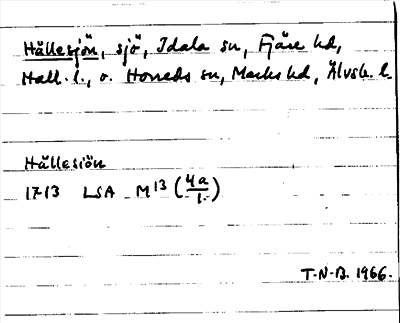 Hällesjön, sjö, Idala sn, Fjäre hd,
Hall. l., o. Horreds sn, Marks hd, Älvsb. l.
Hällesiön
1713 LSA M13 (4a/1)
T.N-B. 1966.